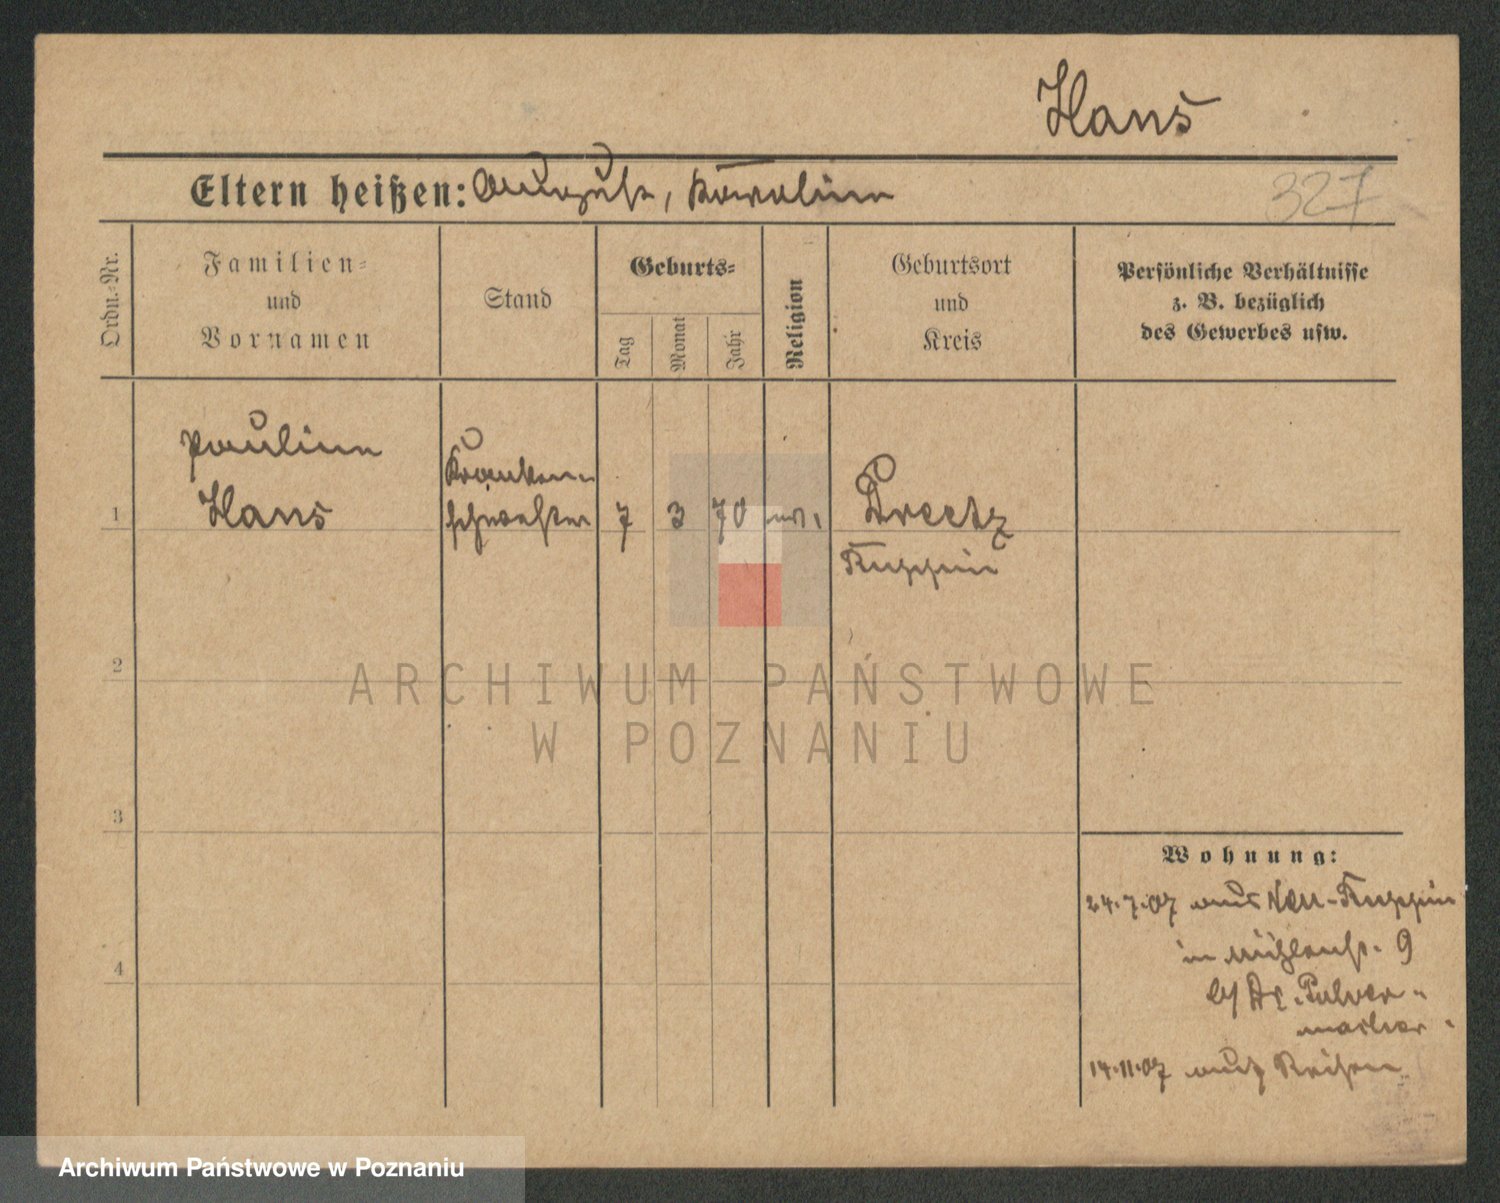 Hans
Eltern heißen: August, Karoline
327
Ordn.-Nr.
Familien-
und
Vornamen
Stand
Geburts-
Tag
Monat
Jahr
Religion
Geburtsort
und
Kreis
Persönliche Verhältnisse
z. B. bezüglich
des Gewerbes usw.
Pauline
Hans
Kranken-
schwester
1
7
3
70
ev.
Dreetz
Ruppin
2
3
4
ARCHIWUM PAŃSTWOWE
W POZNANIU
Wohnung:
24.7.07 aus Neu-Ruppin
in Mühlenst. 9
b/ Dr. Pulver-
macher
14.11.07 auf Reisen
Archiwum Państwowe w Poznaniu